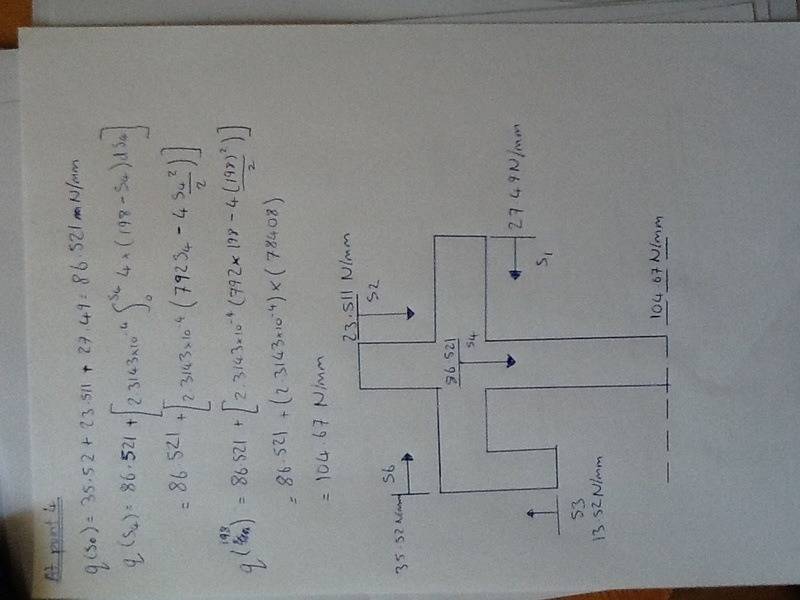 At point 4
q(s₀) = 35.52 + 23.511 + 27.49 = 86.521 N/mm
q(S₄) = 86.521 + [2.3143×10⁻⁴ ∫₀^S₄ 4×(198-S₄)dS₄]
= 86.521 + [2.3143×10⁻⁴ (792S₄ - 4S₄²/2)]
q(198) = 86.521 + [2.3143×10⁻⁴ (792×198 - 4(198)²/2)]
= 86.521 + (2.3143×10⁻⁴) × (78408)
= 104.67 N/mm
23.511 N/mm
S2
35.52 N/mm
S6
86.521
S4
27.49 N/mm
S1
S3
13.52 N/mm
104.67 N/mm